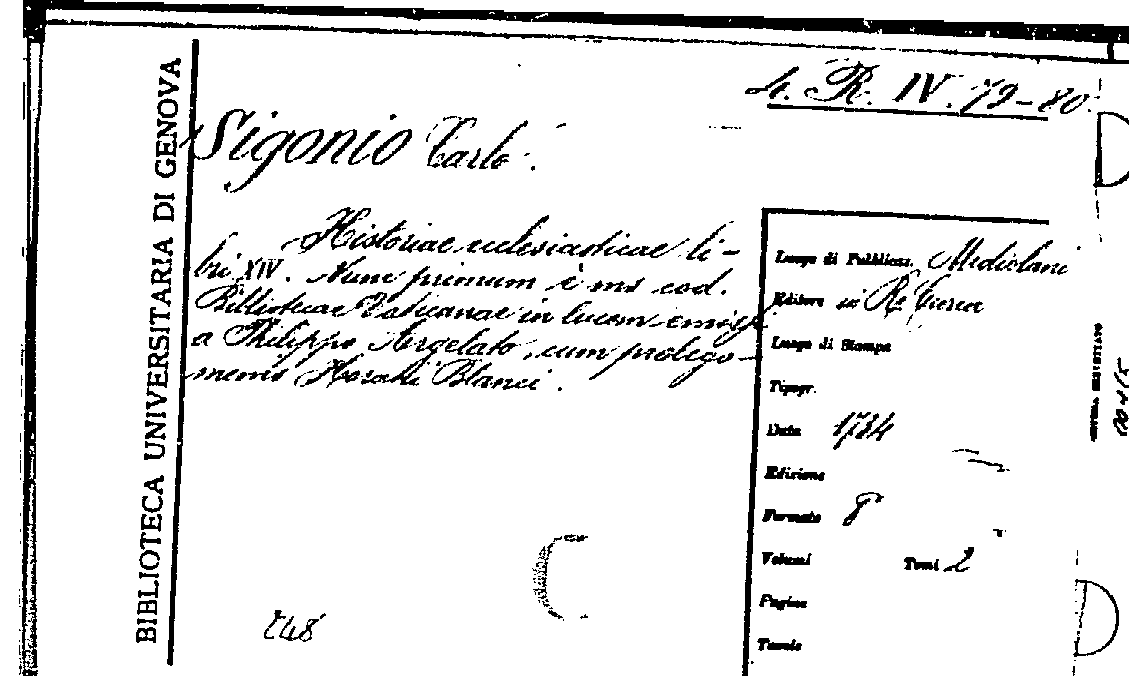 4. R. IV. 79-80
BIBLIOTECA UNIVERSITARIA DI GENOVA
Sigonio Carlo.
Historiae ecclesiasticae li-
bri XIV. Nunc primum è ms cod.
Bibliotecae Vaticanae in lucem emissi
a Philippo Argelato, cum prolego-
menis Horatii Blanci.
Luogo di Pubblicaz. Mediolani
Editore in R. Curia
Luogo di Stampa
Tipogr.
Data 1734
Edizione
Formato 8
Volumi Tomi 2
Pagine
Tavole
248